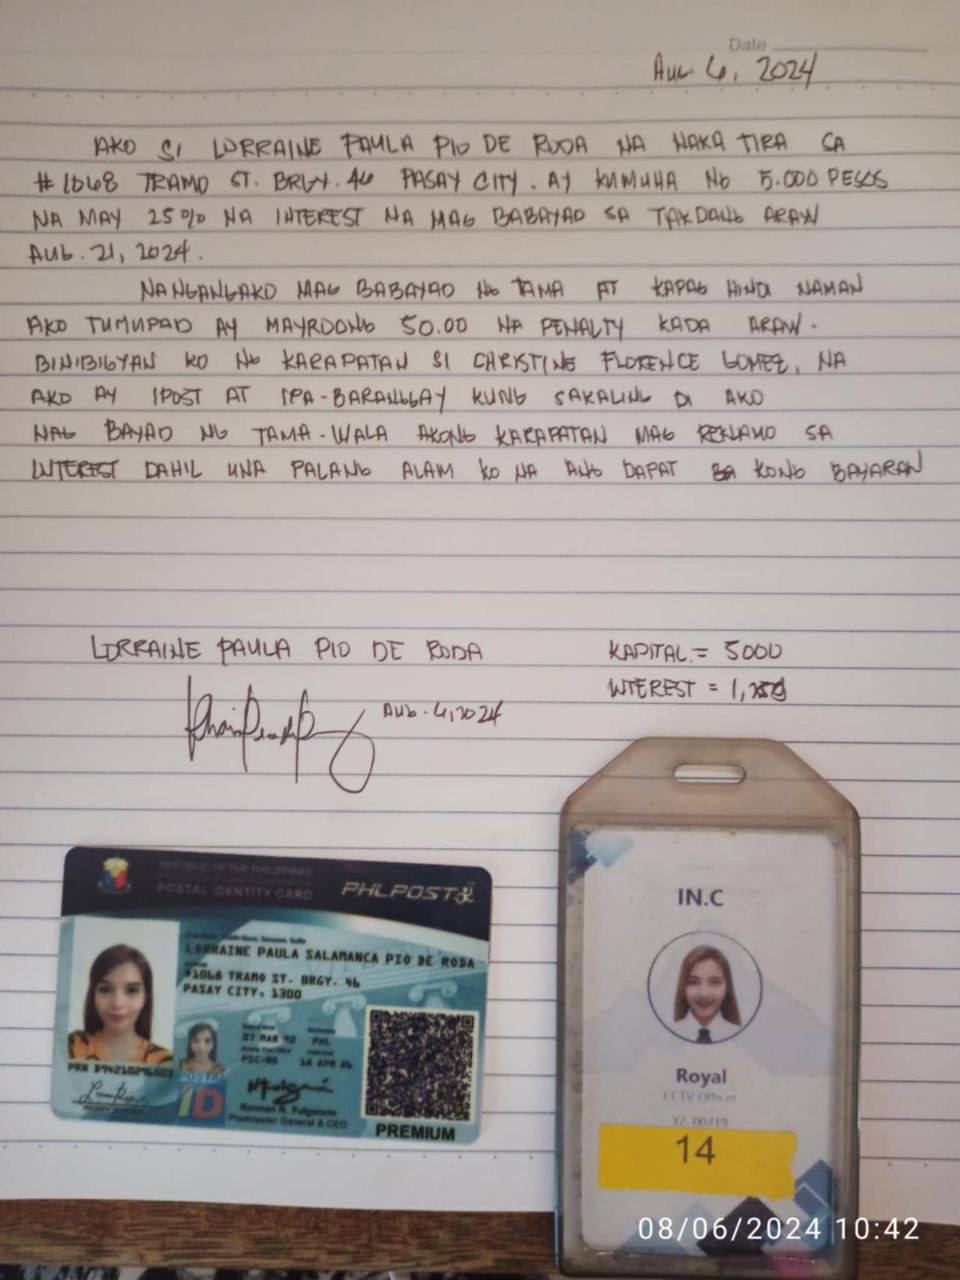 Date
AUG 6, 2024
AKO SI LORRAINE PAULA PIO DE RODA NA NAKA TIRA SA
#1068 TRAMO ST. BRGY. 46 PASAY CITY. AY KUMUHA NG 5.000 PESOS
NA MAY 25% NA INTEREST NA MAG BABAYAD SA TAKDANG ARAW
AUG. 21, 2024.
NANGANGAKO MAG BABAYAD NG TAMA AT KAPAG HINDI NAMAN
AKO TUMUPAD AY MAYROONG 50.00 NA PENALTY KADA ARAW.
BINIBIGYAN KO NG KARAPATAN SI CHRISTINE FLORENCE GOMEZ, NA
AKO AY IPOST AT IPA-BARANGGAY KUNG SAKALING DI AKO
NAG BAYAD NG TAMA. WALA AKONG KARAPATAN MAG REKLAMO SA
INTEREST DAHIL UNA PALANG ALAM KO NA ANG DAPAT KONG BAYARAN
LORRAINE PAULA PIO DE RODA
KAPITAL = 5000
INTEREST = 1,250
AUG. 6, 2024
REPUBLIC OF THE PHILIPPINES
POSTAL IDENTITY CARD
PHLPOST
LORRAINE PAULA SALAMANCA PIO DE RODA
#1068 TRAMO ST. BRGY. 46
PASAY CITY, 1300
PHL
POSTAL
ID
Norman N. Fulgencio
Postmaster General & CEO
PREMIUM
IN.C
Royal
CCTV Officer
14
08/06/2024 10:42